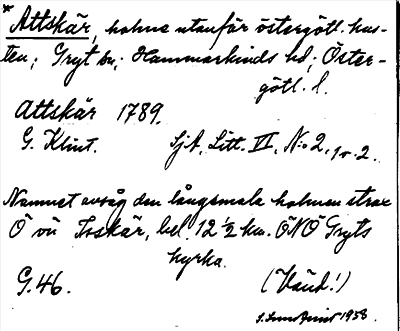 * Attskär, holme utanför östergötl. kus-
ten; Gryt sn; Hammarkinds hd; Öster-
götl. l.
Attskär 1789.
G. Klint. Sjt. Litt. II, N:o 2, 1 o. 2.
Namnet avsåg den långsmala holmen strax
Ö om Torskär, bel. 12 ½ km. ÖNÖ Gryts
kyrka.
G.46. (Vänd!)
1958